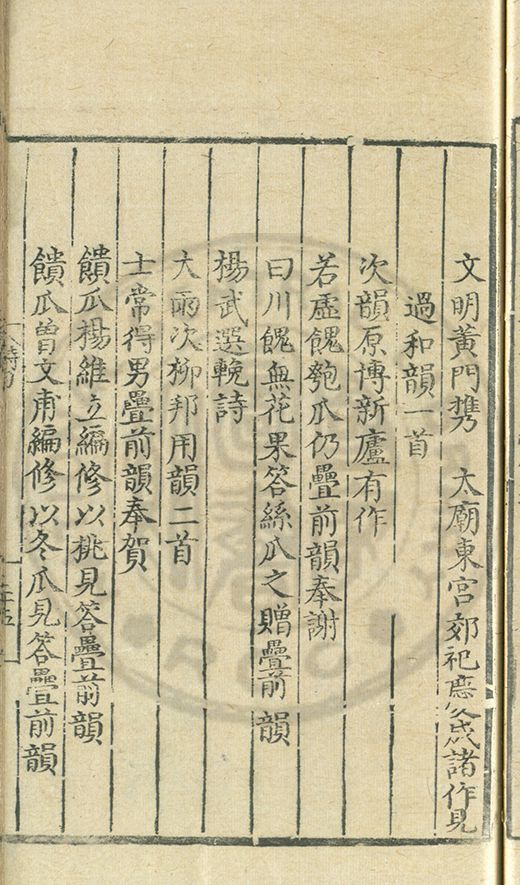 文明黃門携　太廟東宮郊祀慶成諸作見
過和韻一首
次韻原博新廬有作
若虛餽匏瓜仍疊前韻奉謝
曰川餽無花果答絲瓜之贈疊前韻
楊武選輓詩
大雨次柳邦用韻二首
士常得男疊前韻奉賀
饋瓜楊維立編修以桃見答疊前韻
饋瓜曾文甫編修以冬瓜見答疊前韻